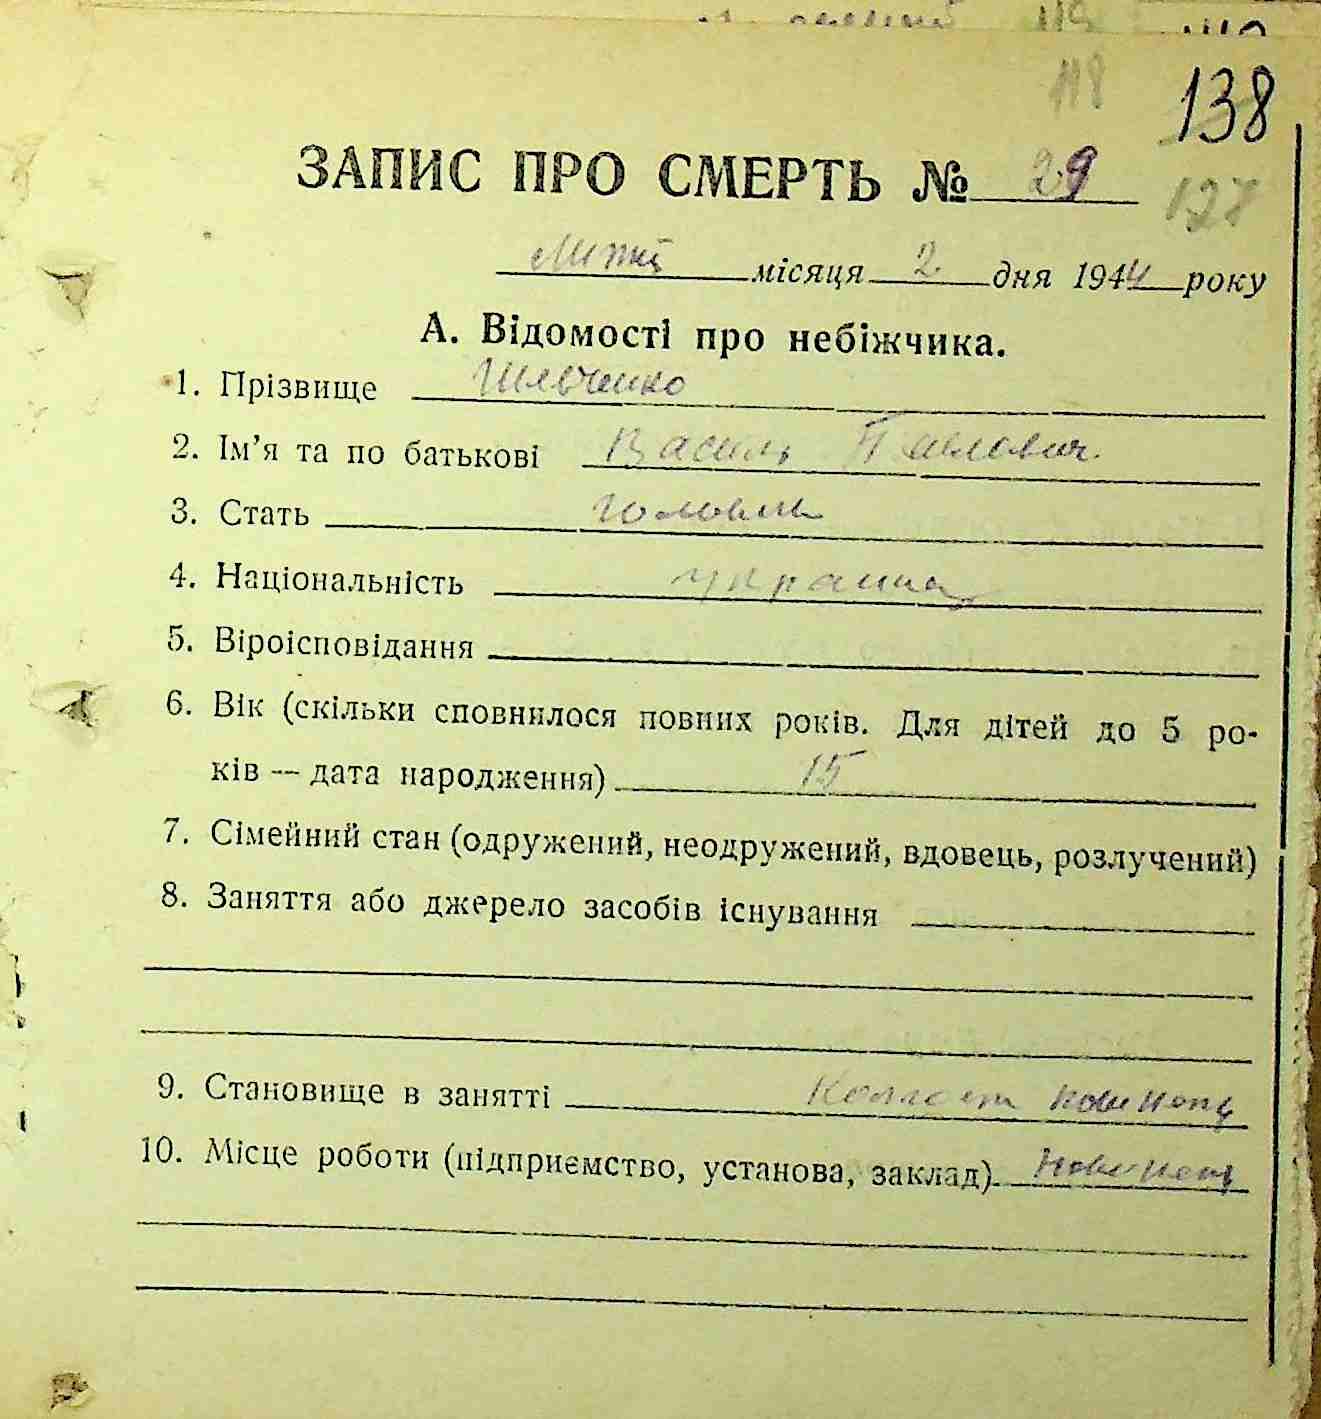 118
138
ЗАПИС ПРО СМЕРТЬ № 29
128
місяця 2 дня 1944 року
А. Відомості про небіжчика.
1. Прізвище Шевченко
2. Ім'я та по батькові Василь Павлович
3. Стать
4. Національність
5. Віроісповідання
6. Вік (скільки сповнилося повних років. Для дітей до 5 ро-
ків — дата народження) 15
7. Сімейний стан (одружений, неодружений, вдовець, розлучений)
8. Заняття або джерело засобів існування
9. Становище в занятті
10. Місце роботи (підприємство, установа, заклад)